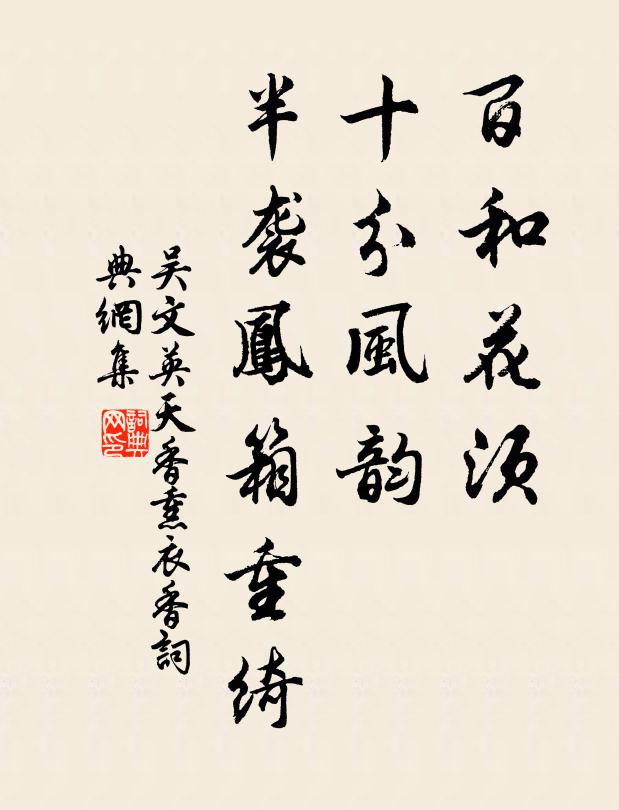 百和花须
十分風韵
半袭鳳箱重绮
吴文英天香熏衣香詞
典網集
詞典网印